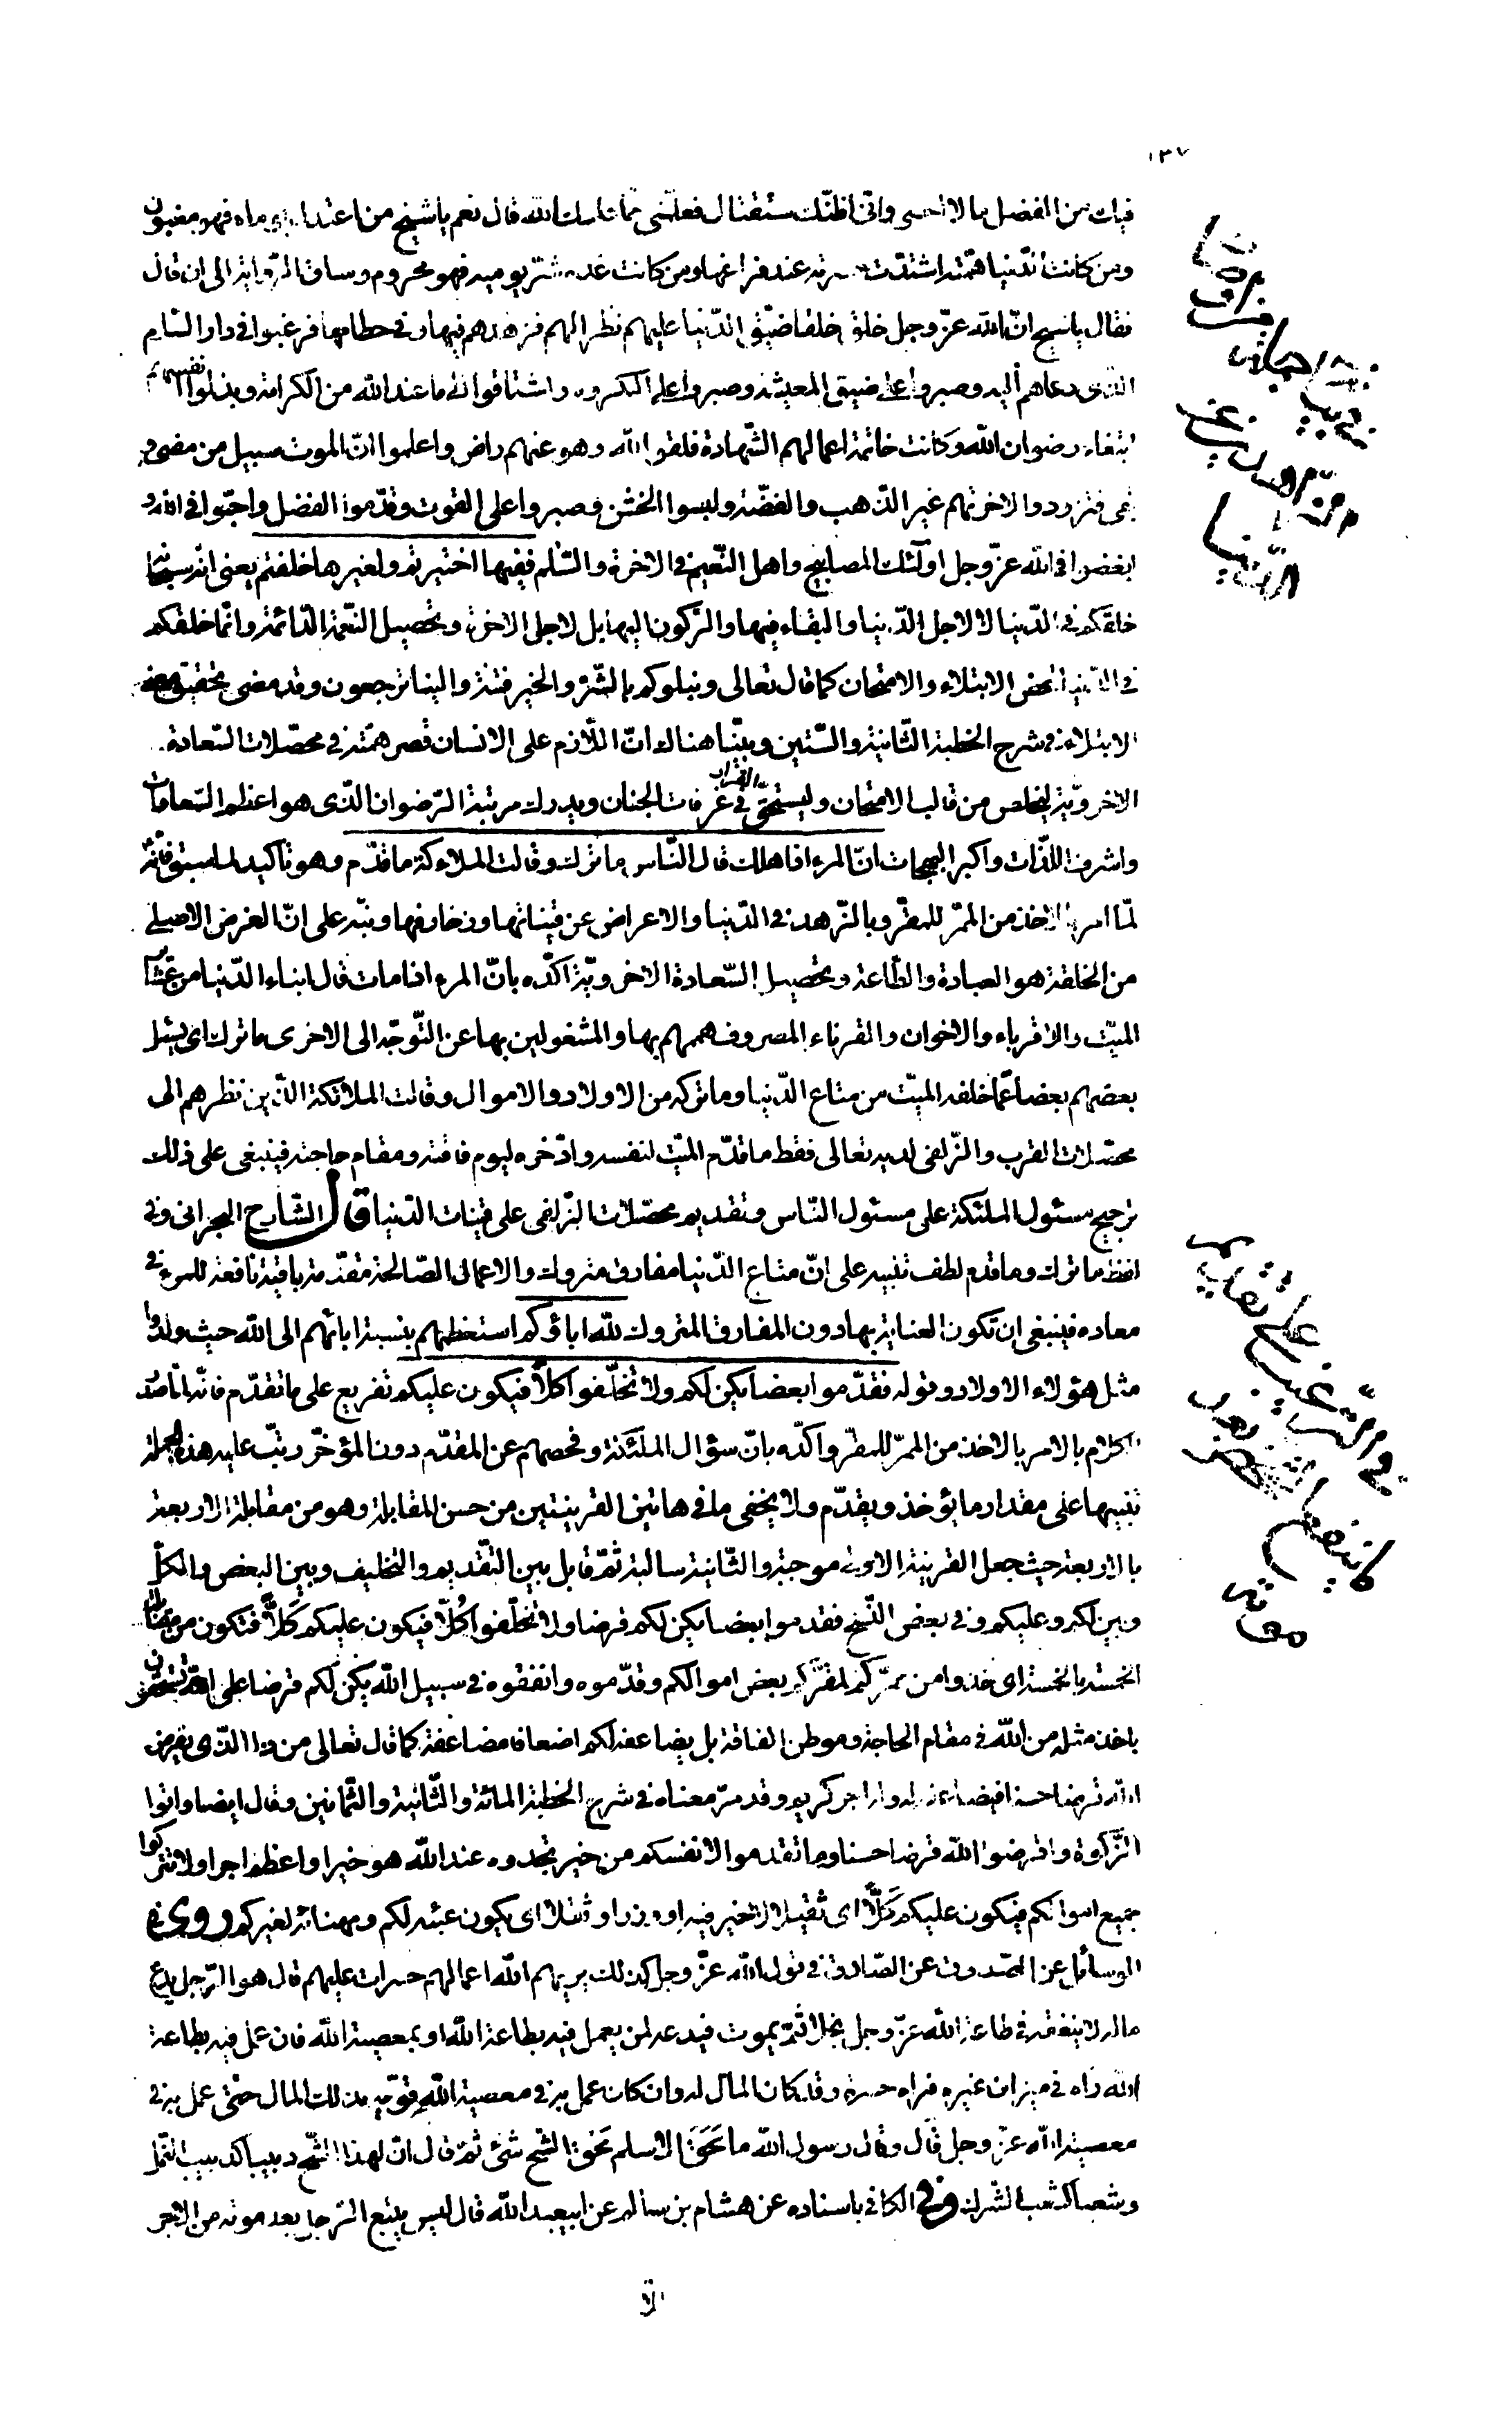 ١٣٧
فيك من الفضل ما لا احصى وانّى اظنّك ستقتال فعلّمنى ممّا علّمك الله قال نعم يا شيخ من اعتدل يوماه فهو مغبون
ومن كانت الدّنيا همّته اشتدّت حسرته عند فراغها ومن كانت غده شرّ يوميه فهو محروم وساق الرّواية الى ان قال
فقال يا شيخ انّ الله عزّ وجل خلق خلقا ضيّق الدّنيا عليهم نظرا لهم فزهدهم فيها وفى حطامها فرغبوا فى دار السّلم
الذى دعاهم اليه وصبروا على ضيق المعيشة وصبروا على المكروه واشتاقوا الى ما عند الله من الكرامة وبذلوا انفسهم
ابتغاء رضوان الله وكانت خاتمة اعمالهم الشّهادة فلقوا الله وهو عنهم راض واعلموا انّ الموت سبيل من مضى و
بقى فتزودوا لاخرتهم غير الذّهب والفضّة ولبسوا الخشن وصبروا على القوت وقدّموا الفضل واحبّوا فى الله و
ابغضوا فى الله عزّ وجل اولئك المصابيح واهل النّعيم فى الاخرة والسّلم ففيها اختبرتم ولغيرها خلقتم يعنى انّه سبحانه
خلقكم فى الدّنيا لا لاجل الدّنيا والبقاء فيها والرّكون اليها بل لاجل الاخرة وتحصيل النّعمة الدّائمة وانّما خلقكم
فى الدّنيا لمحض الابتلاء والامتحان كما قال تعالى ونبلوكم بالشّرّ والخير فتنة والينا ترجعون وقد مضى تحقيق معنى
الابتلاء فى شرح الخطبة الثّانية والسّتين وبيّنا هناك انّ اللّازم على الانسان قصر همّته فى محصّلات السّعادة
الاخرويّة ليخلص من قالب الامتحان وليستحقّ القرار فى غرفات الجنان ويدرك مرتبة الرّضوان الّذى هو اعظم السّعادات
واشرف اللذّات واكبر البهجات انّ المرء اذا هلك قال النّاس ما ترك وقالت الملائكة ما قدّم وهو تأكيد لما سبق فانّه
لمّا امر بالاخذ من الممرّ للمقرّ وبالزّهد فى الدّنيا والاعراض عن قيناتها وزخارفها ونبّه على انّ الغرض الاصلى
من الخلقة هو العبادة والطّاعة وتحصيل السّعادة الاخرويّة اكّده بانّ المرء اذا مات قال ابناء الدّنيا من عشاير
الميّت والاقرباء والاخوان والقرناء المصروف هممهم بها والمشغولين بها عن التّوجّه الى الاخرى ما ترك اى يسئل
بعضهم بعضا عمّا خلفه الميّت من متاع الدّنيا وما تركه من الاولاد والاموال وقالت الملائكة الذّين نظرهم الى
محصّلات القرب والزّلفى لديه تعالى فقط ما قدّم الميّت لنفسه وادّخره ليوم فاقته ومقام حاجته فينبغى على ذلك
ترجيح مسئول الملئكة على مسئول النّاس وتقديم محصّلات الزّلفى على قينات الدّنيا قال الشّارح البحرانى وفى
لفظ ما ترك وما قدّم لطف تنبيه على انّ متاع الدّنيا مفارق متروك والاعمال الصّالحة مقدّمة باقية نافعة للمرء فى
معاده فينبغى ان تكون العناية بها دون المفارق المتروك لله اباؤكم استعظمهم بنسبة ابائهم الى الله حيث ولدوا
مثل هؤلاء الاولاد وقوله فقدّموا بعضا يكن لكم ولا تخلّفوا كلّا فيكون عليكم تفريع على ما تقدّم فانّه لمّا صدّر
الكلام بالامر بالاخذ من الممرّ للمقرّ واكّده بانّ سؤال الملئكة وفحصهم عن المقدّم دون المؤخّر رتّب عليه هذه الجملة
تنبيها على مقدار ما يؤخذ ويقدّم ولا يخفى ما فى هاتين القرينتين من حسن المقابلة وهو من مقابلة الاربعة
بالاربعة حيث جعل القرينة الاولى موجبة والثّانية سالبة ثمّ قابل بين التّقديم والتخليف وبين البعض والكلّ
وبين لكم وعليكم وفى بعض النّسخ فقدموا بعضا يكن لكم قرضا ولا تخلّفوا كُلّا فيكون عليكم كَلّا فتكون من مقابلة
الخمسة بالخمسة اى خذوا من ممرّكم لمقرّكم بعض اموالكم وقدّموه وانفقوه فى سبيل الله يكن لكم قرضا على الله تستحقون
باخذ مثله من الله فى مقام الحاجة وموطن الفاقة بل يضاعفه لكم اضعافا مضاعفة كما قال تعالى من ذا الذّى يقرض
الله قرضا حسنا فيضاعفه له وله اجر كريم وقد مرّ معناه فى شرح الخطبة المائة والثّانية والثّمانين وقال ايضا واتوا
الزّكوة واقرضوا الله قرضا حسنا وما تقدموا لانفسكم من خير تجدوه عند الله هو خيرا واعظم اجرا ولا تتركوا
جميع اموالكم فيكون عليكم كَلّا اى ثقيلا لا خير فيه او وزرا وثقلا اى يكون عبئه لكم ومهناه لغيركم روى فى
الوسائل عن الصّدوق عن الصّادق فى قول الله عزّ وجل كذلك يريهم الله اعمالهم حسرات عليهم قال هو الرّجل يدع
ماله لا ينفقه فى طاعة الله عزّ وجل بخلا ثمّ يموت فيدعه لمن يعمل فيه بطاعة الله او بمعصية الله فان عمل فيه بطاعة
الله راه فى ميزان غيره فراه حسرة وقد كان المال له وان كان عمل به فى معصية الله قوّيه بذلك المال حتّى عمل به فى
معصية الله عزّ وجل قال وقال رسول الله ما مَحَقَ الاسلم مَحْقَ الشّح شئ ثمّ قال انّ لهذا الشّح دبيبا كدبيب النّمل
وشعبا كشعب الشّرك وفى الكافى باسناده عن هشام بن سالم عن ابيعبد الله قال ليس يتبع الرّجل بعد موته من الاجر
الّا